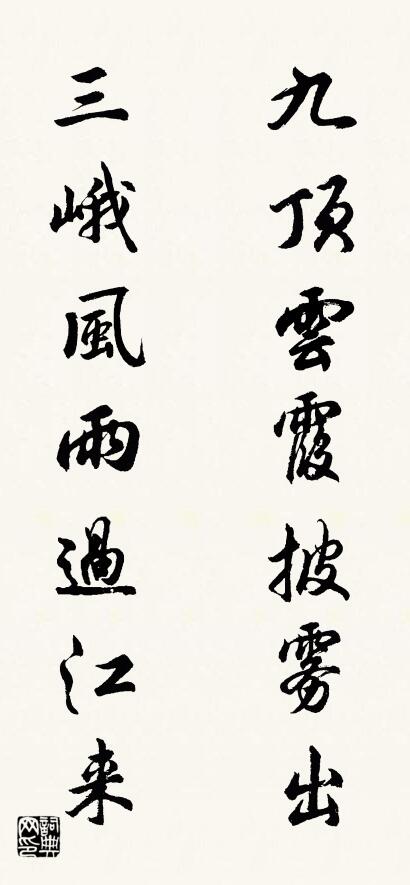 九頂雲霞披雾出
三峨風雨過江来
詞典网印